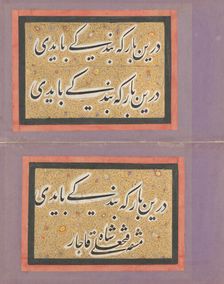 درین بارکه بندیگی بایدی
درین بارکه بندیگی بایدی
درین بارکه بندیگی بایدی
مشقه فتحعلی شاه قاجار